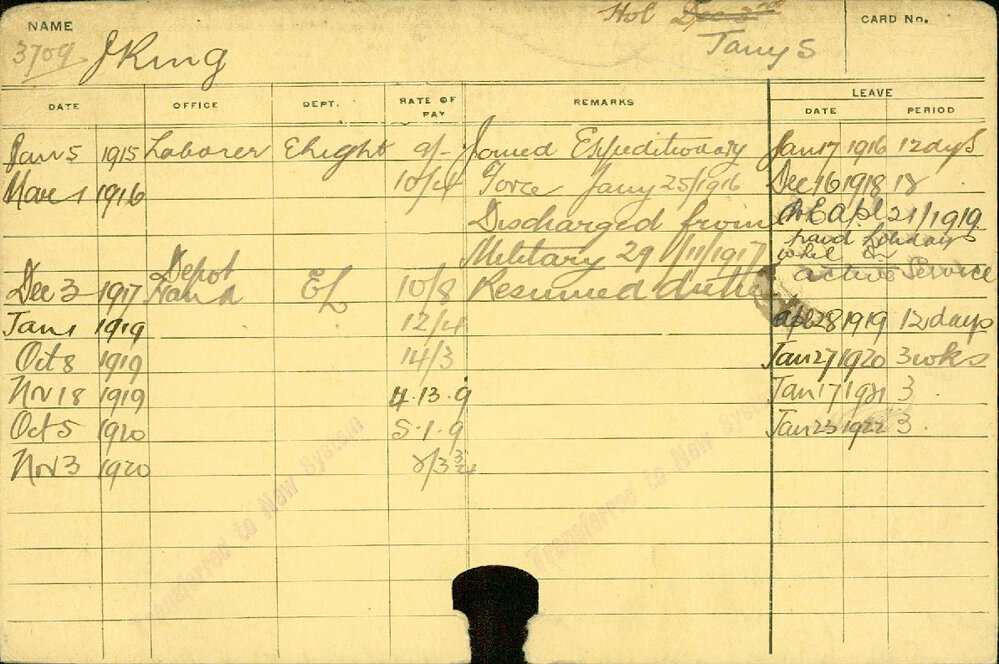 NAME Hol Dec 3rd CARD No.
3709 J King Jany 5
DATE OFFICE DEPT. RATE OF PAY REMARKS LEAVE
DATE PERIOD
Jan 5 1915 Laborer Elight 9/- Joined Expeditionary Jan 17 1916 12 days
Mar 1 1916 10/4 Force Jany 25/1916 Dec 16 1918 18
Discharged from Apl 21/1919
Military 29/11/1917 paid holidays
while on
Dec 3 1917 Depot Hand EL 10/8 Resumed duties active service
Jan 1 1919 12/4 Apl 28 1919 12 days
Oct 8 1919 14/3 Jan 27 1920 3 wks
Nov 18 1919 4.13.9 Jan 17 1921 3
Oct 5 1920 5.1.9 Jan 23 1922 3.
Nov 3 1920 /3 3/4
Transferred to New System
Transferred to New System